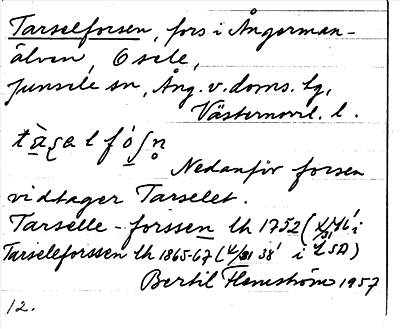 Tarselforsen, fors i Ångerman-
älven, Osele,
Junsele sn, Ång. v. doms. lg,
Västernorrl. l.
Nedanför forsen
vidtager Tarselet.
Tarselle-forssen lh 1752 (
Tarseleforssen lh 1865-67 ( 38' i LSA)
Bertil Flemström 1957
12.